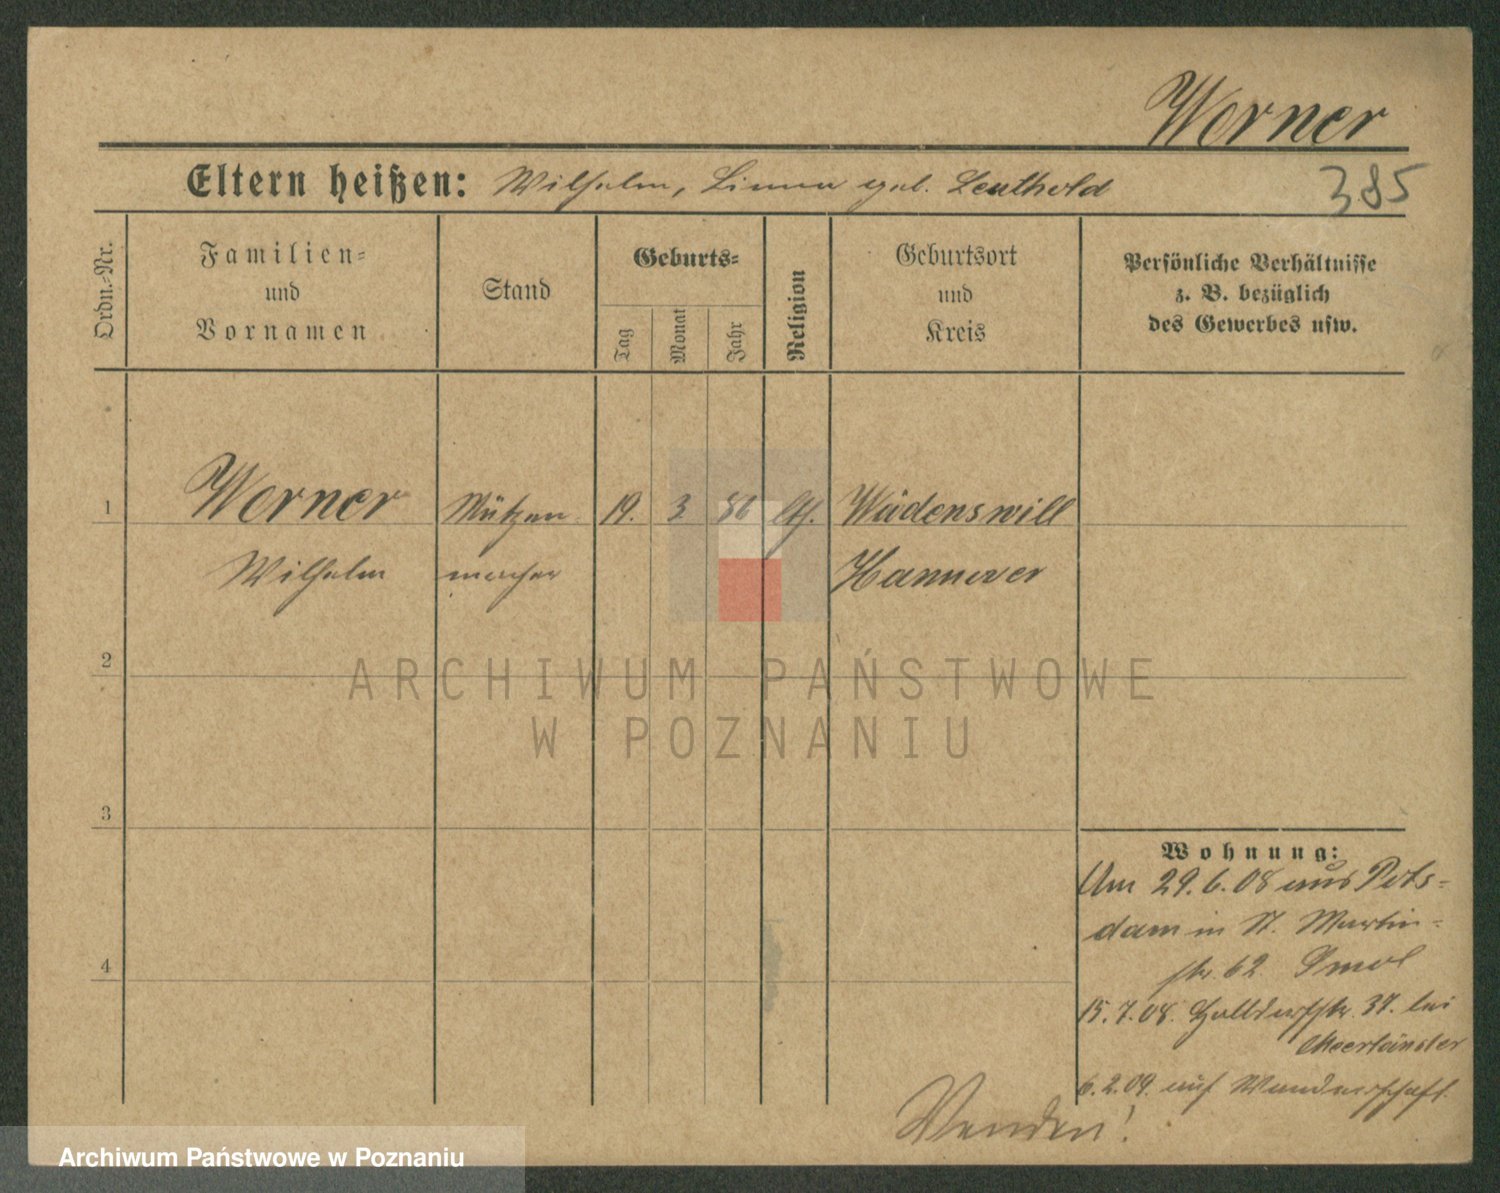 Werner
Eltern heißen: Wilhelm, Linna geb. Leuthold
385
Ordn.-Nr.
Familien-
und
Vornamen
Stand
Geburts-
Tag
Monat
Jahr
Religion
Geburtsort
und
Kreis
Persönliche Verhältnisse
z. B. bezüglich
des Gewerbes usw.
1
Werner
Mützen
19.
3
86
Wädenswill
Wilhelm
macher
Hannover
2
ARCHIWUM PAŃSTWOWE
W POZNANIU
3
Wohnung:
Um 29.6.08 aus Pots-
dam in St. Martin-
str. 62.
4
15.7.08. 37. bei
6.2.09. auf Wanderschaft.
Wenden!
Archiwum Państwowe w Poznaniu